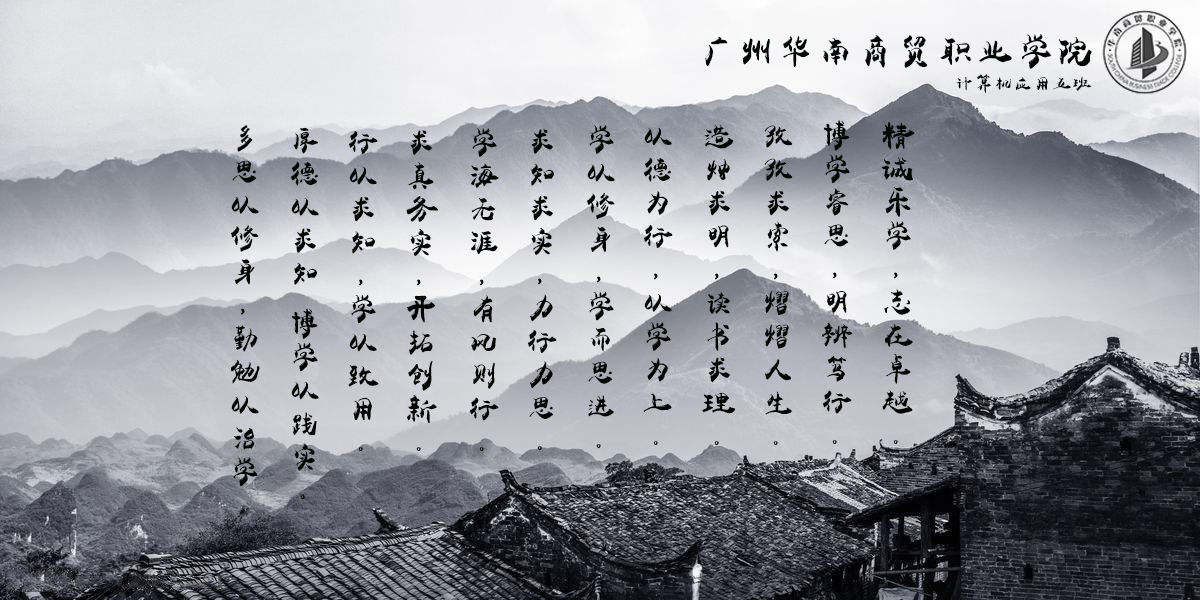 广州华南商贸职业学院
计算机应用五班
精诚乐学，志在卓越。
博学睿思，明辨笃行。
孜孜求索，熠熠人生。
造烛求明，读书求理。
以德为行，以学为上。
学以修身，学而思进。
求知求实，力行力思。
学海无涯，有风则行。
求真务实，开拓创新。
行以求知，学以致用。
厚德以求知 博学以践实。
多思以修身，勤勉以治学